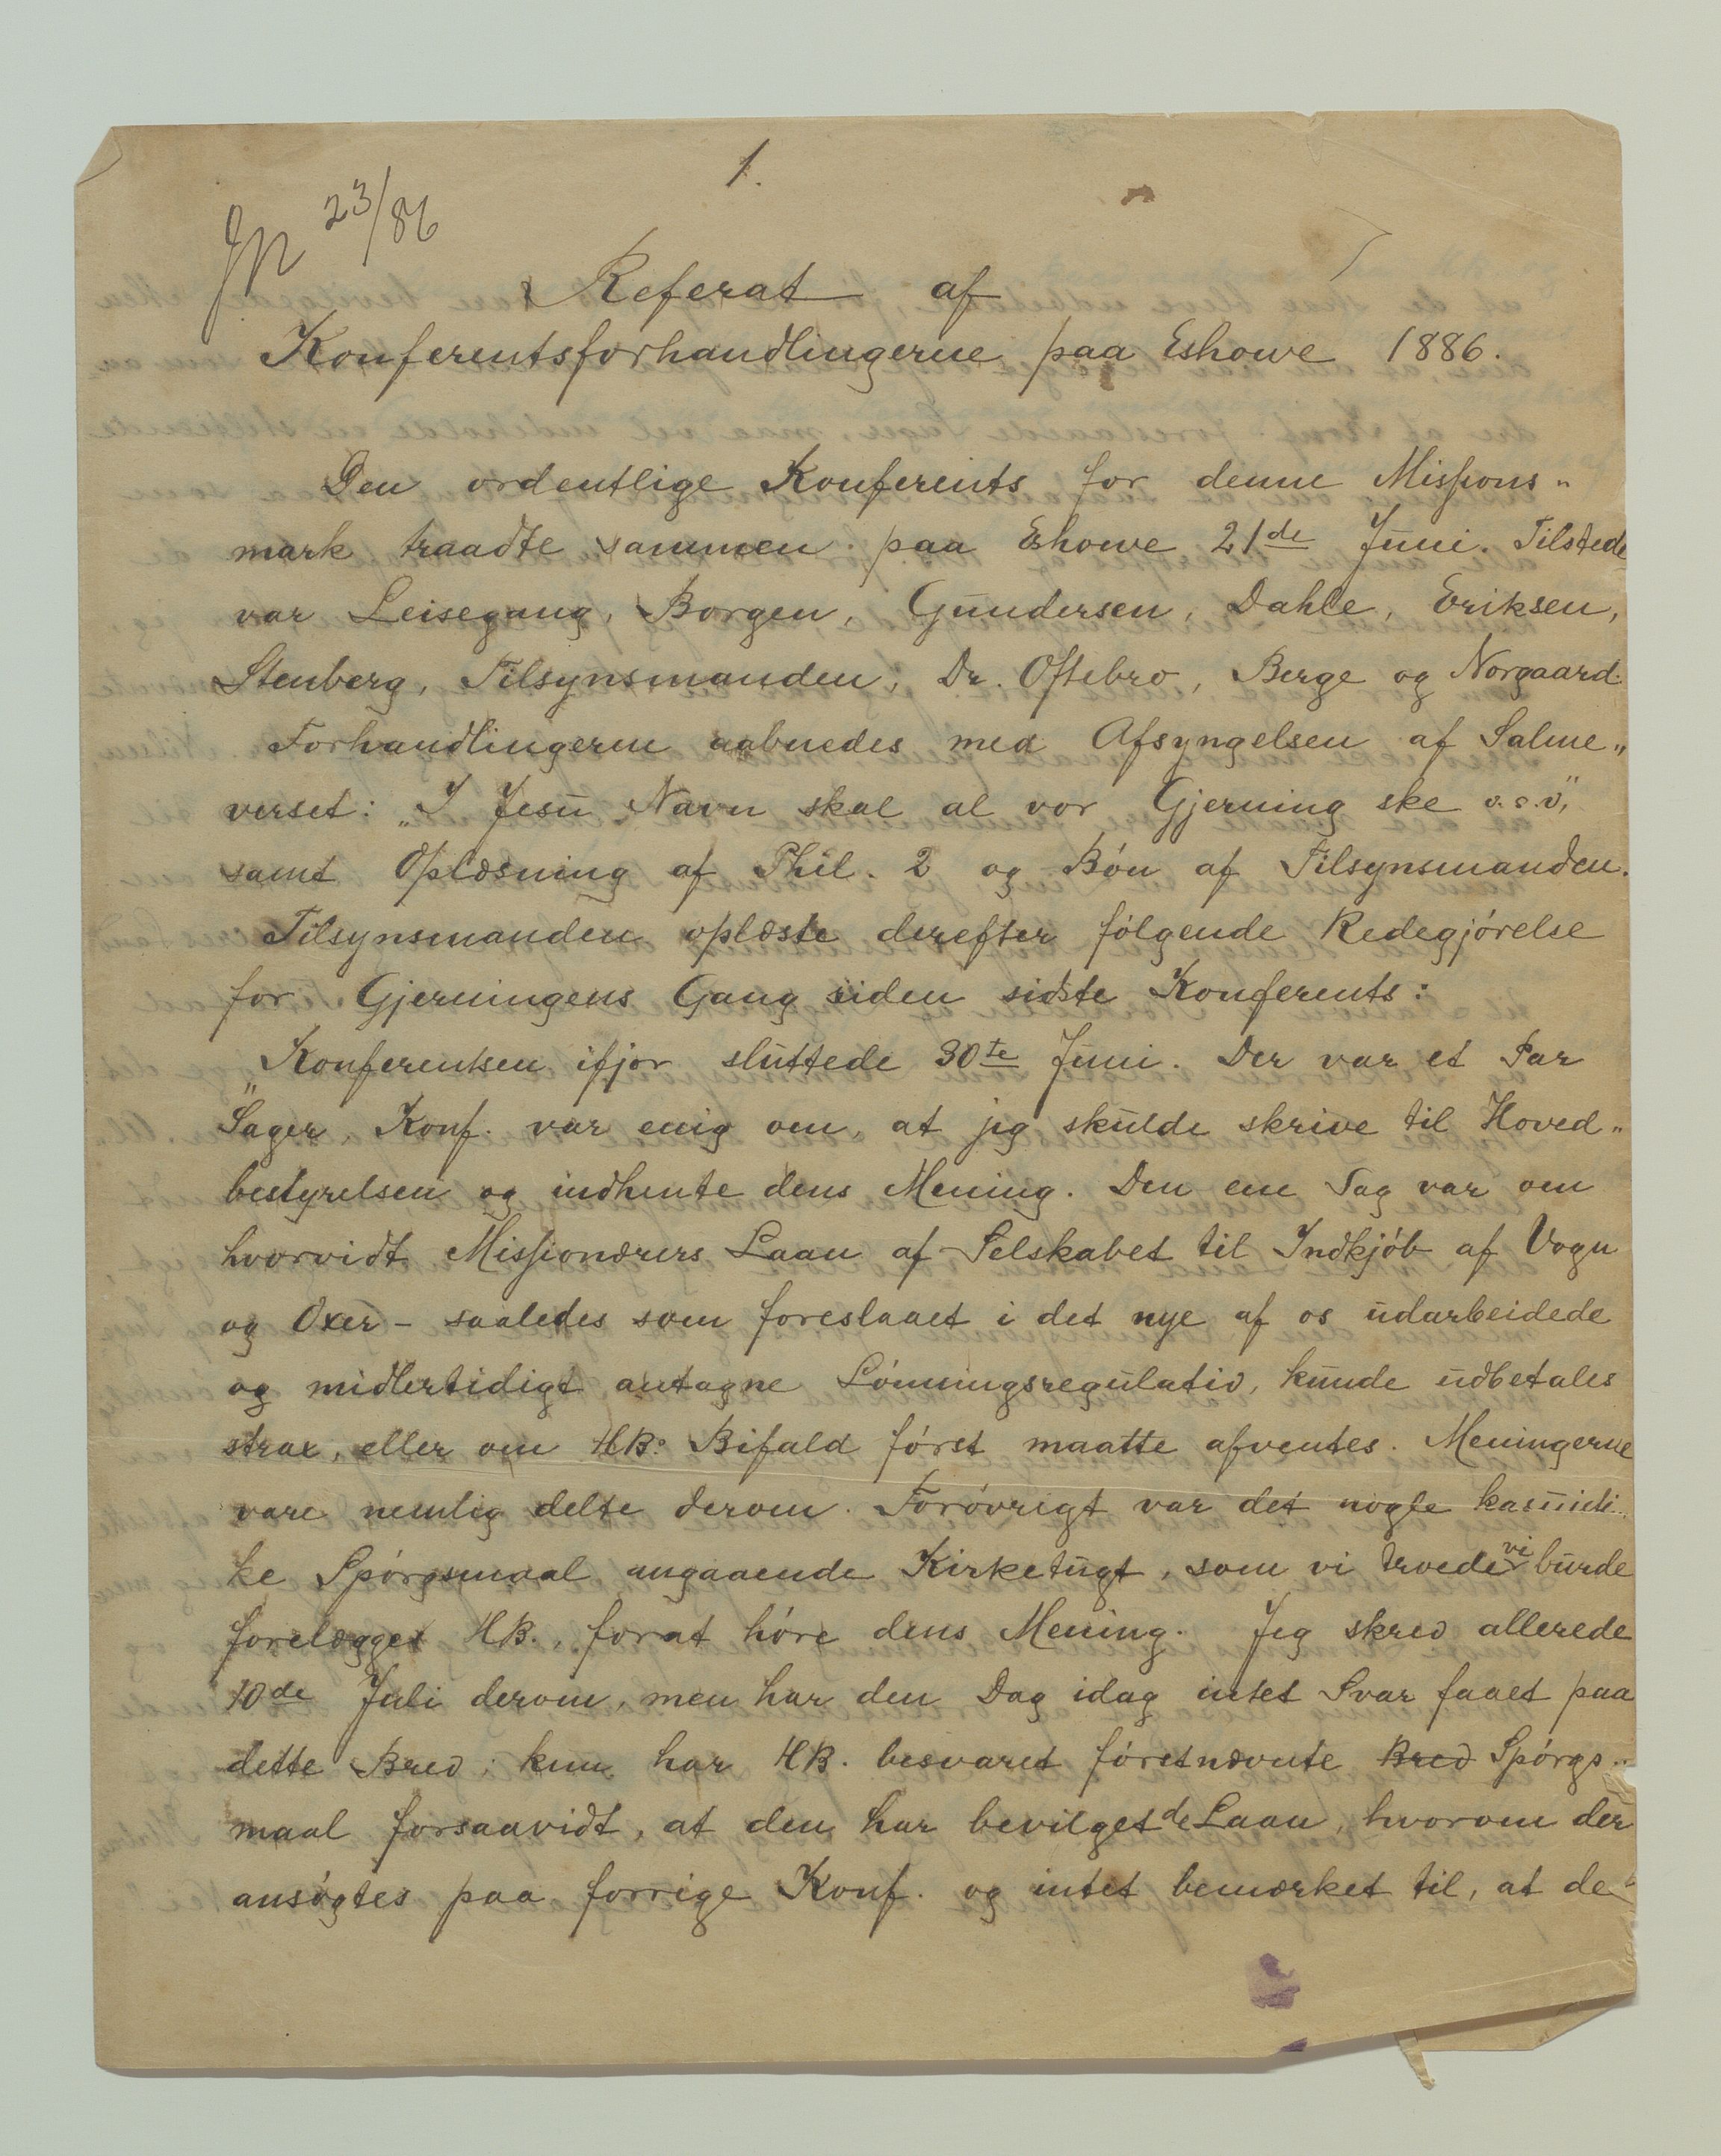 1.
Jn 23/86
Referat af
Konferentsforhandlingerne paa Eshowe 1886.
Den ordentlige Konferents for denne Missions„
mark traadte sammen paa Eshowe 21de Juni. Tilstede
var Leisegang, Borgen, Gundersen, Dahle, Eriksen,
Stenberg, Tilsynsmanden, Dr. Oftebro, Berge og Norgaard.
Forhandlingerne aabnedes med Afsyngelsen af Salme„
verset: „I Jesu Navn skal al vor Gjerning ske o.s.v.",
samt Oplæsning af Phil. 2 og Bón af Tilsynsmanden.
Tilsynsmanden oplæste derefter fólgende Redegjórelse
for Gjerningens Gang siden sidste Konferents:
„Konferentsen ifjor sluttede 30te Juni. Der var et Par
Sager, Konf. var enig om, at jeg skulde skrive til Hoved„
bestyrelsen og indhente dens Mening. Den ene Sag var om
hvorvidt Missionærers Laan af Selskabet til Indkjób af Vogn
og Oxer - saaledes som foreslaaet i det nye af os udarbeidede
og midlertidigt antagne Lónningsregulativ, kunde udbetales
strax, eller om HBs Bifald fórst maatte afventes. Meningerne
vare nemlig delte derom. Foróvrigt var det nogle kasuisti„
ke Spórgsmaal angaaende Kirketugt, som vi troede vi burde
forelægges HB., forat hóre dens Mening. Jeg skrev allerede
10de Juli derom, men har den Dag idag intet Svar faaet paa
dette Brev; kun har HB. besvaret fórstnævnte Brev Spórgs„
maal forsaavidt, at den har bevilget de Laan, hvorom der
ansógtes paa forrige Konf. og intet bemærket til, at de